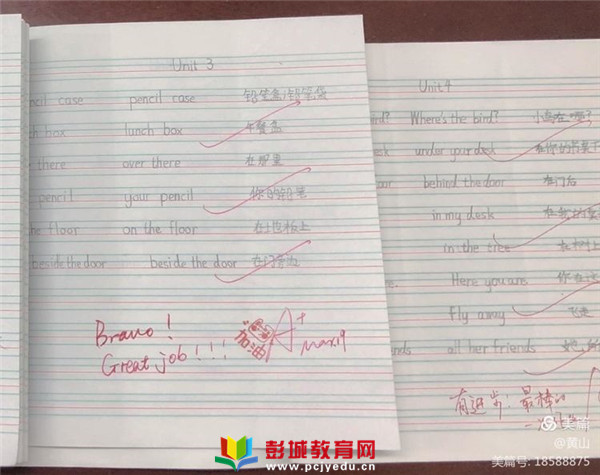 Unit 3
ncil case pencil case 铅笔盒;铅笔袋
ch box lunch box 午餐盒
there over there 在那里
pencil your pencil 你的铅笔
he floor on the floor 在地板上
beside the door beside the door 在门旁边
Bravo!
Great job!!!
加油
A+
Mar.19
Unit 4
rd? Where's the bird? 小鸟在哪?
esk under your desk 在你的书桌下
oor behind the door 在门后
in my desk 在我的
in the tree 在树上
re. Here you are. 你在这
Fly away 飞走
ends all her friends 她
有进步!最棒的
美篇
@黄山
美篇号: 18588875
彭城教育网
www.pcjyedu.cn